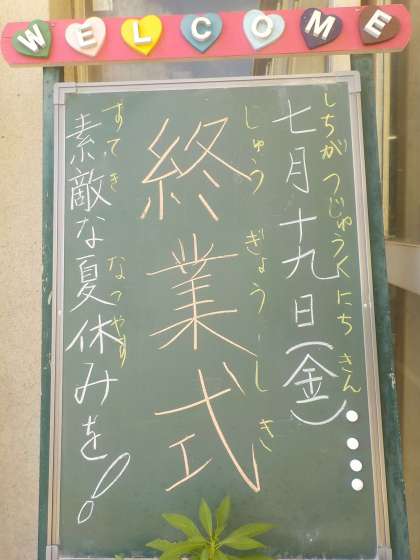 WELCOME
しちがつじゅうくにち きん
七月十九日(金)
じゅう ぎょう しき
終業式
すてき なつやす
素敵な夏休みを!